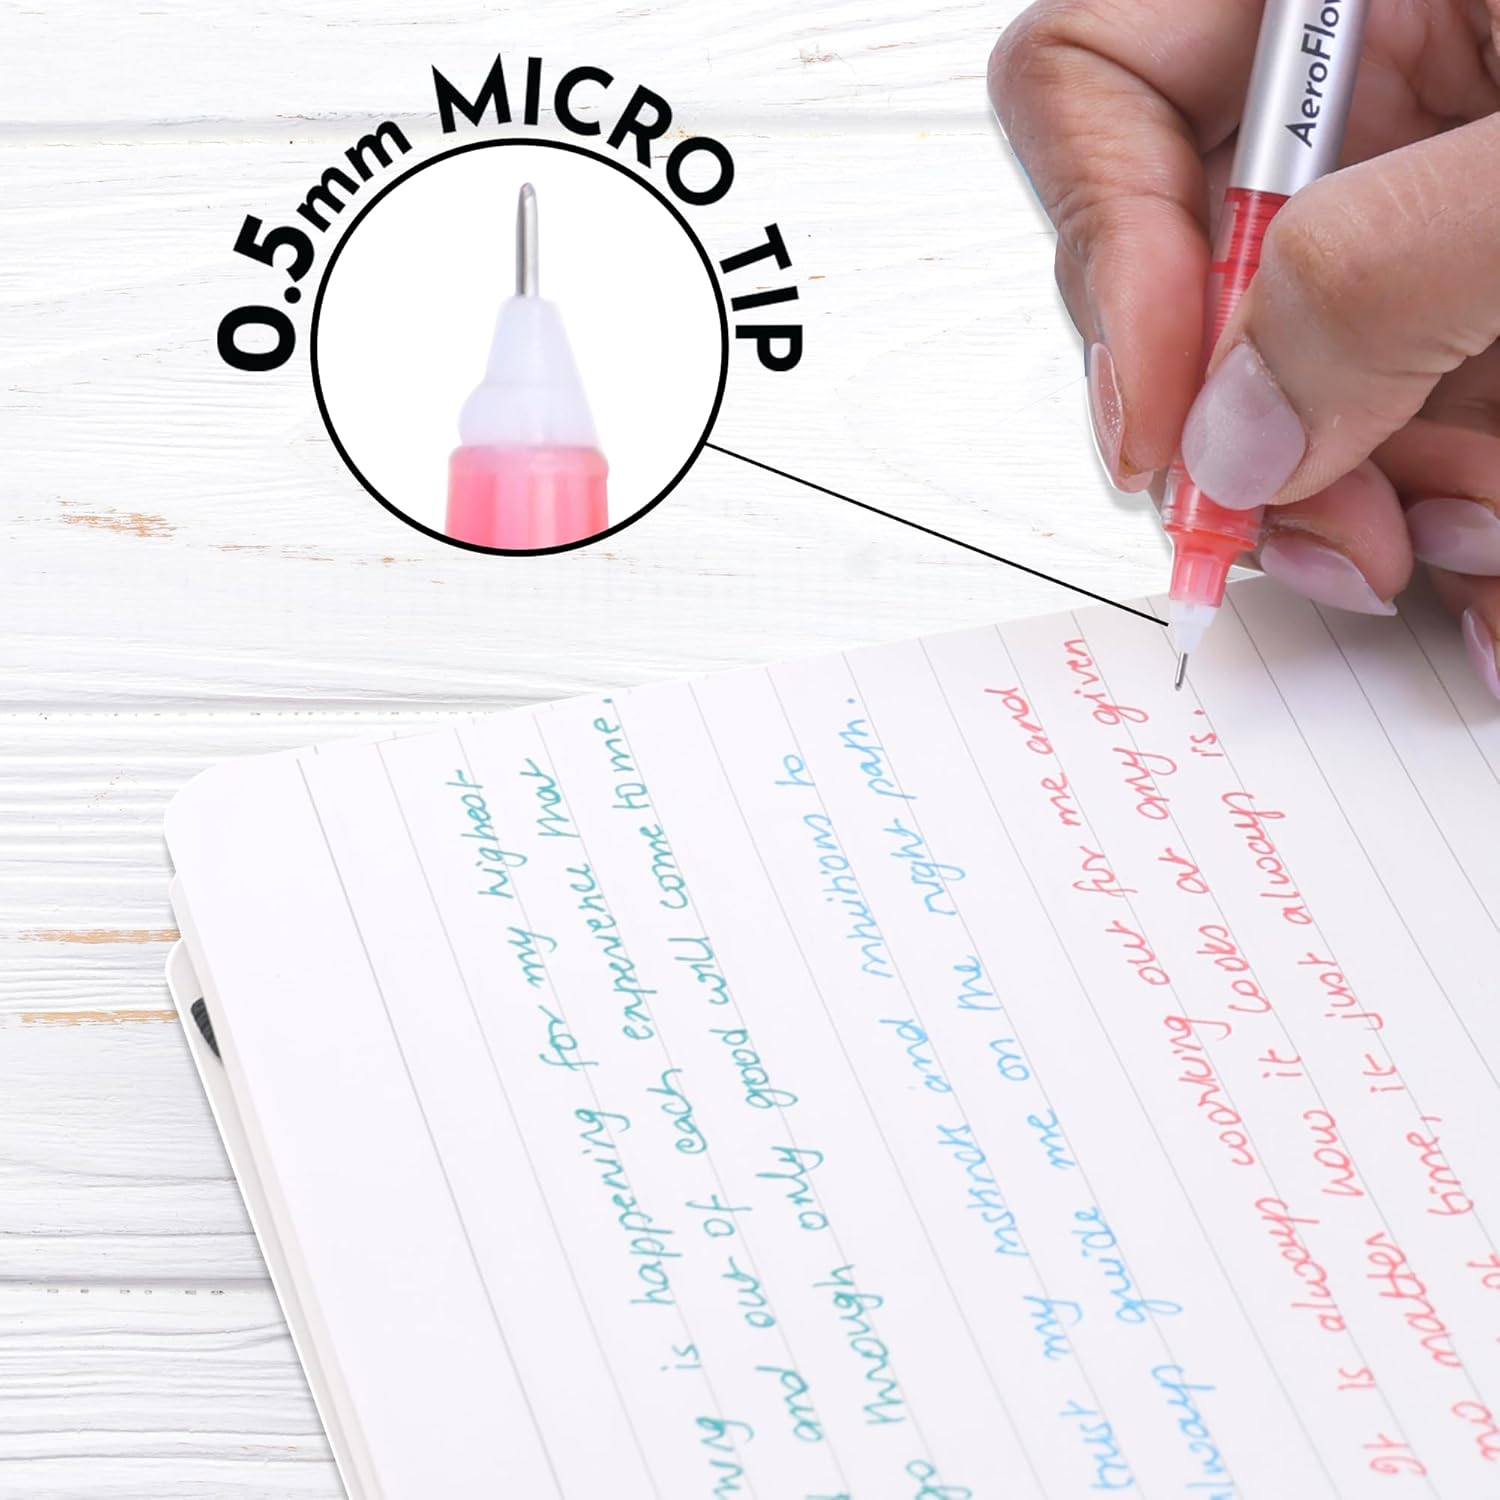 0.5mm MICRO TIP
AeroFlow
is happening for my highest
and out of each experience that
though only good will come to me.
trust my instincts and intuition to
always guide me on the right path.
It is always working out for me and
no matter how it looks at any given
time, it just always is.